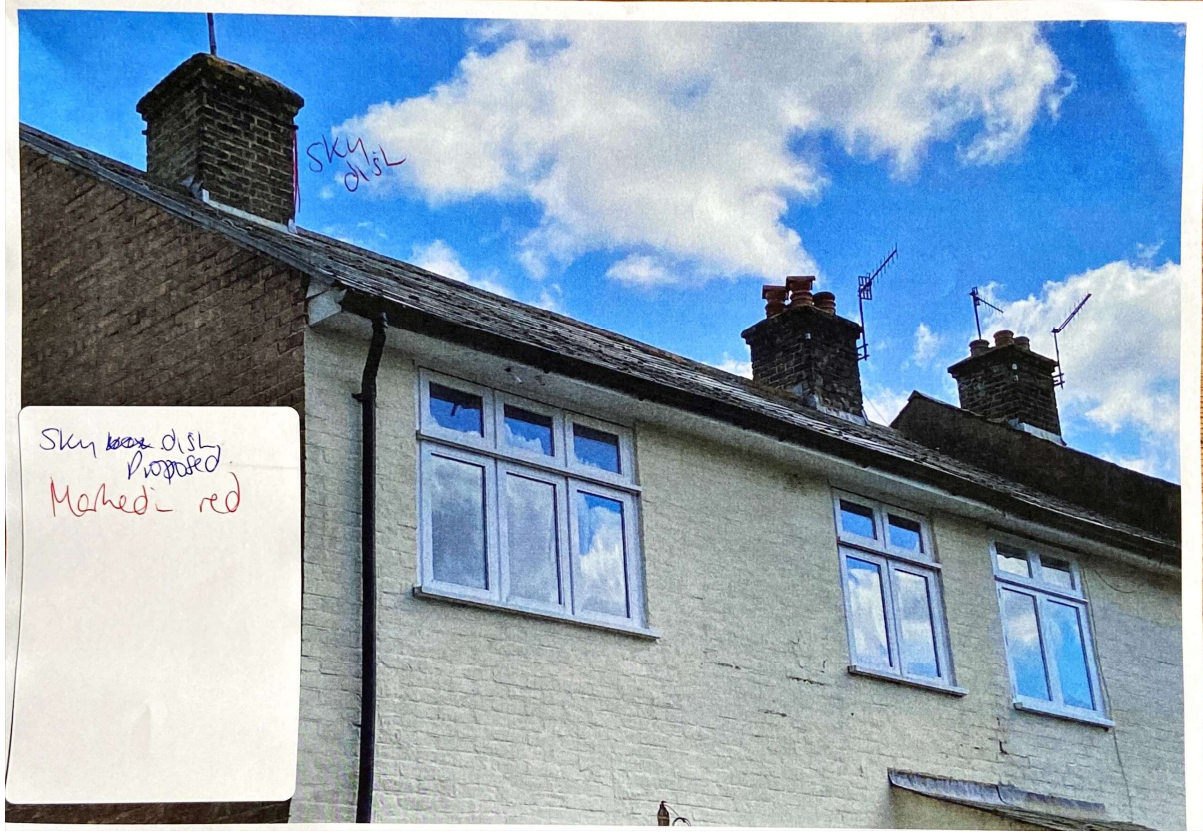 Sky
dish
Sky box dish
Proposed
Marked in red